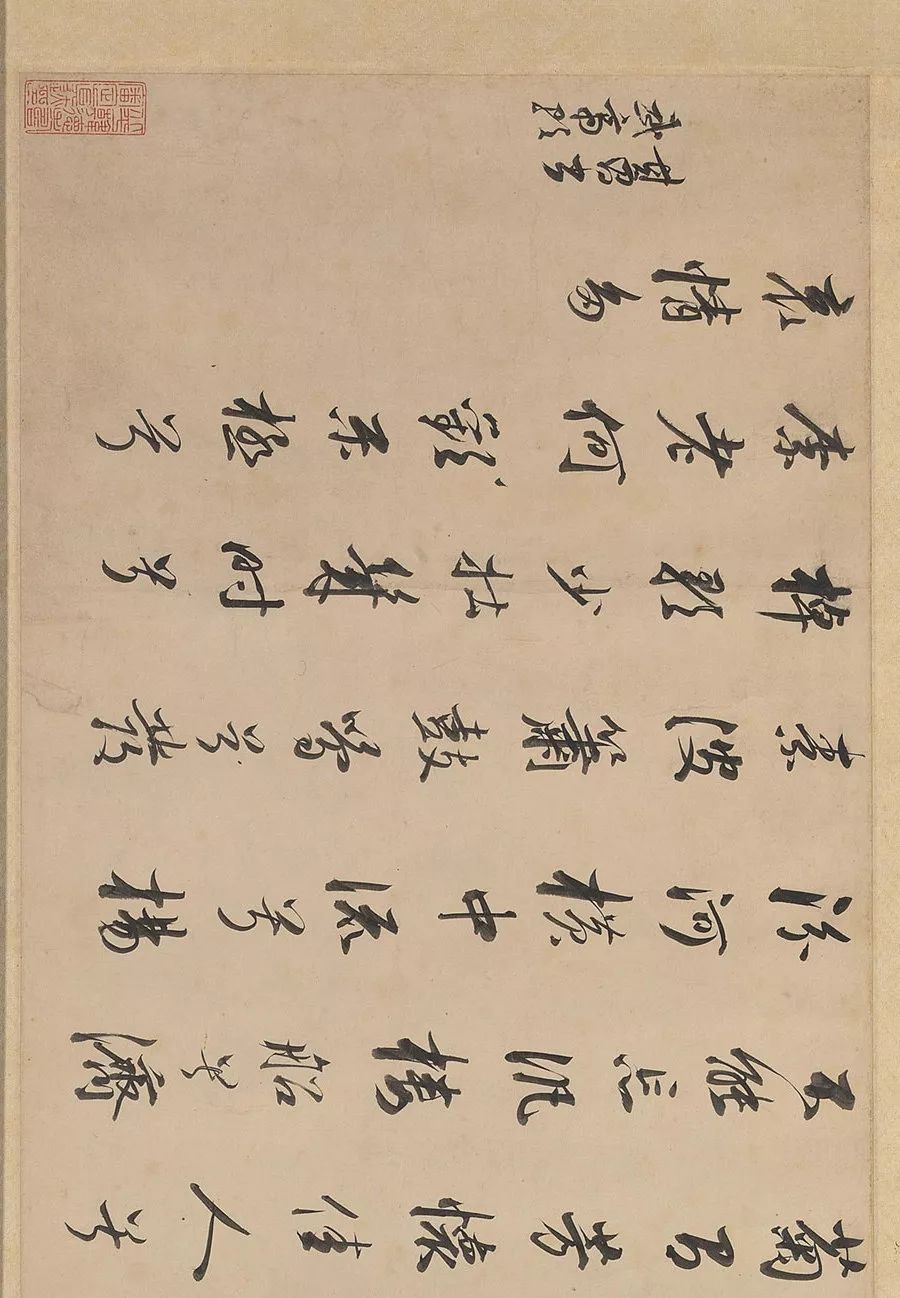 菊有芳懷佳人兮
不能忘泛樓船兮濟
汾河橫中流兮揚
素波簫鼓鳴兮發
棹歌少壯幾時兮
奈老何歡樂極兮
哀情多